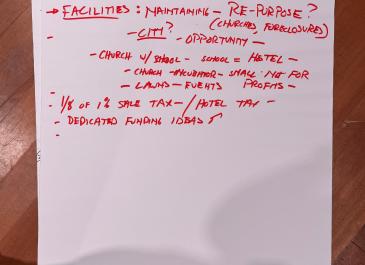 → FACILITIES: MAINTAINING - RE-PURPOSE?
(CHURCHES, FORECLOSURES)
- - CITY? - OPPORTUNITY -
- CHURCH W/ SCHOOL - SCHOOL = HOSTEL -
- CHURCH - INCUBATOR - SMALL NOT FOR PROFITS -
- - LAWNS - EVENTS
- 1/8 OF 1% SALE TAX - / HOTEL TAX -
- DEDICATED FUNDING IDEAS
-